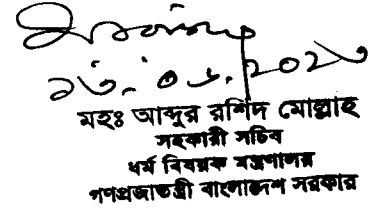 মহঃ আব্দুর রশিদ মোল্লাহ
সহকারী সচিব
ধর্ম বিষয়ক মন্ত্রণালয়
গণপ্রজাতন্ত্রী বাংলাদেশ সরকার